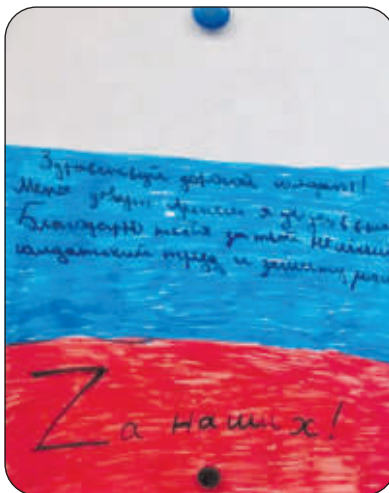 Здравствуй дорогой солдат!
Меня зовут я
Благодарю тебя за твой нелёгкий
солдатский труд и защиту
Zа наших!